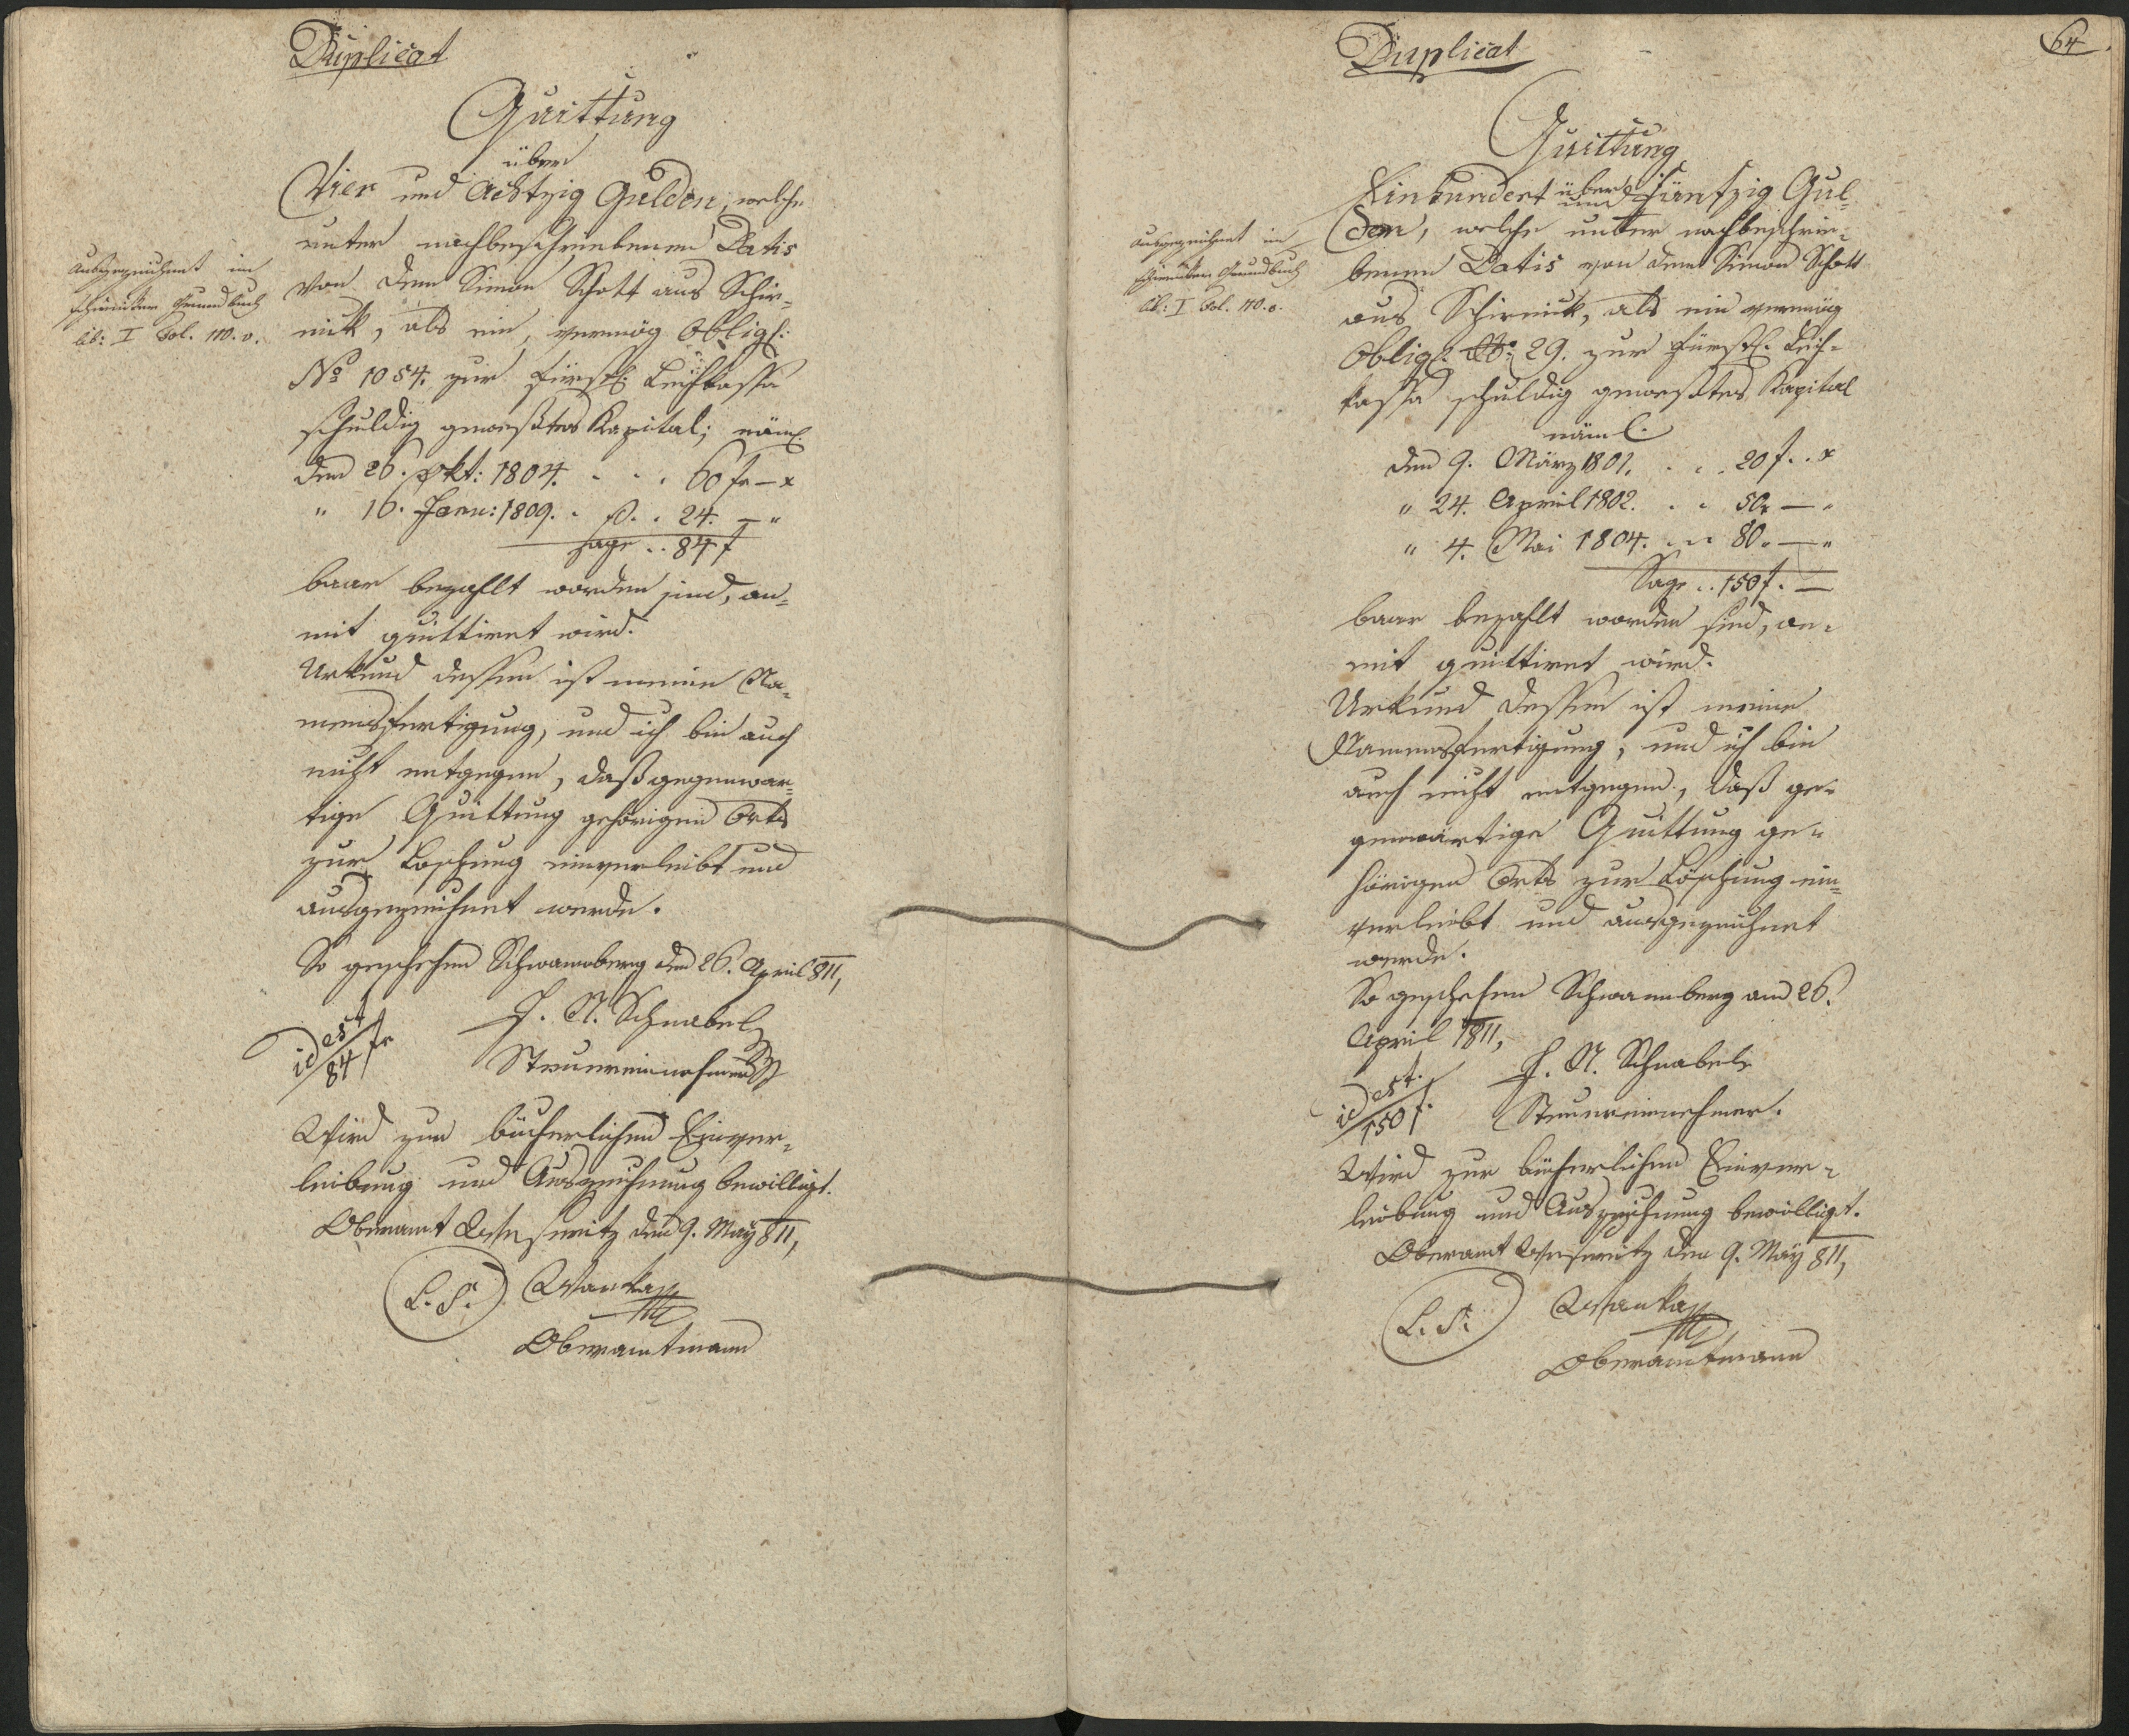 Duplicat
Quittung
über
Vier und Achtzig Gulden, welche
unter nachbeschriebenen Datis
von dem Simon Schott aus Schir-
nik, als ein, vermög Obligs:
No 1054. zur fürstl: Leihkassa
schuldig gewestes Kapital; näml.
den 26. Okt: 1804. . . . 60 fr – x
" 16. Janu: 1809. . . . 24. – "
Sage .. 84 f
baar bezahlt worden sind, an-
mit quittiret wird.
Urkund dessen ist meine Na-
mensfertigung, und ich bin auch
nicht entgegen, daß gegenwär-
tige Quittung gehörigen Orts
zur Löschung einverleibt und
ausgezeichnet werde.
So geschehen Schwamberg den 26. April 811,
J. N. Schnabel
id est
84 fr
Steuereinnehmer
Wird zur bücherlichen Einver-
leibung und Auszeichnung bewilligt.
Oberamt Weseritz den 9. May 811,
L. S. Wanka
Oberamtmann
Ausgezeichnet im
Schirniker Grundbuch
lib: I Fol. 110. v.
64
Duplicat
Quittung
über
Einhundert und fünfzig Gul-
den, welche unter nachbeschrie-
benen Datis von dem Simon Schott
aus Schirnik, als ein vermög
Obligs: No: 29. zur fürstl. Leih-
kassa schuldig gewestes Kapital
näml.
den 9. März 1801. . . . 20 f. . x
" 24. April 1802. . . 50. – "
" 4. Mai 1804. . . 80. – "
Sage .. 150 f. –
baar bezahlt worden sind, an-
mit quittiret wird.
Urkund dessen ist meine
Namensfertigung, und ich bin
auch nicht entgegen, daß ge-
genwärtige Quittung ge-
hörigen Orts zur Löschung ein-
verleibt und ausgezeichnet
werde.
So geschehen Schwamberg am 26.
April 1811,
J. N. Schnabel
id est.
150 f.
Steuereinnehmer.
Wird zur bücherlichen Einver-
leibung und Auszeichnung bewilligt.
Oberamt Weseritz den 9. May 811,
L. S. Wanka
Oberamtmann
Ausgezeichnet im
Schirniker Grundbuch
lib: I Fol. 110. v.